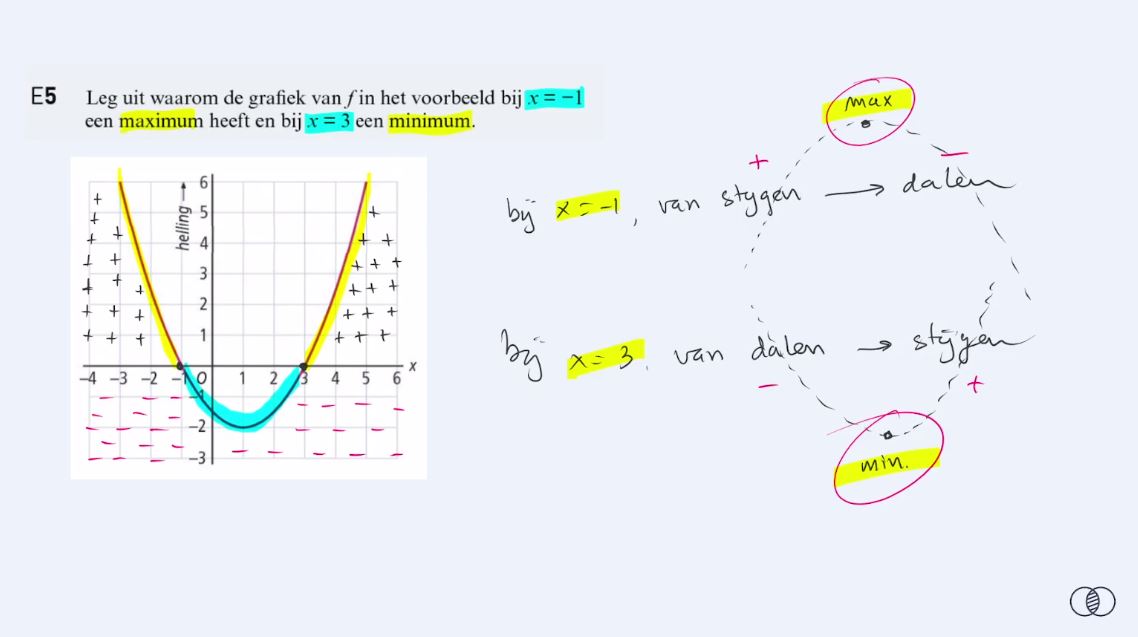 E5 Leg uit waarom de grafiek van f in het voorbeeld bij x = −1
een maximum heeft en bij x = 3 een minimum.
helling
6
5
4
3
2
1
−4 −3 −2 −1 O 1 2 3 4 5 6 x
−1
−2
−3
max
+ −
bij x = -1, van stijgen → dalen
bij x = 3, van dalen → stijgen
− +
min.